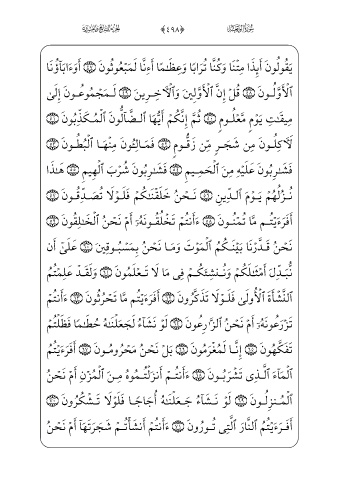 سورة الواقعة ﴿٤٩٨﴾ الجزء السابع والعشرون
يَقُولُونَ أَىِٕذَا مِتْنَا وَكُنَّا تُرَابًا وَعِظَٰمًا أَءِنَّا لَمَبْعُوثُونَ ٤٧ أَوَءَابَآؤُنَا
ٱلْأَوَّلُونَ ٤٨ قُلْ إِنَّ ٱلْأَوَّلِينَ وَٱلْءَاخِرِينَ ٤٩ لَمَجْمُوعُونَ إِلَىٰ
مِيقَٰتِ يَوْمٍ مَّعْلُومٍ ٥٠ ثُمَّ إِنَّكُمْ أَيُّهَا ٱلضَّآلُّونَ ٱلْمُكَذِّبُونَ ٥١
لَءَاكِلُونَ مِن شَجَرٍ مِّن زَقُّومٍ ٥٢ فَمَالِـُٔونَ مِنْهَا ٱلْبُطُونَ ٥٣
فَشَٰرِبُونَ عَلَيْهِ مِنَ ٱلْحَمِيمِ ٥٤ فَشَٰرِبُونَ شُرْبَ ٱلْهِيمِ ٥٥ هَٰذَا
نُزُلُهُمْ يَوْمَ ٱلدِّينِ ٥٦ نَحْنُ خَلَقْنَٰكُمْ فَلَوْلَا تُصَدِّقُونَ ٥٧
أَفَرَءَيْتُم مَّا تُمْنُونَ ٥٨ ءَأَنتُمْ تَخْلُقُونَهُۥٓ أَمْ نَحْنُ ٱلْخَٰلِقُونَ ٥٩
نَحْنُ قَدَّرْنَا بَيْنَكُمُ ٱلْمَوْتَ وَمَا نَحْنُ بِمَسْبُوقِينَ ٦٠ عَلَىٰٓ أَن
نُّبَدِّلَ أَمْثَٰلَكُمْ وَنُنشِئَكُمْ فِى مَا لَا تَعْلَمُونَ ٦١ وَلَقَدْ عَلِمْتُمُ
ٱلنَّشْأَةَ ٱلْأُولَىٰ فَلَوْلَا تَذَكَّرُونَ ٦٢ أَفَرَءَيْتُم مَّا تَحْرُثُونَ ٦٣ ءَأَنتُمْ
تَزْرَعُونَهُۥٓ أَمْ نَحْنُ ٱلزَّٰرِعُونَ ٦٤ لَوْ نَشَآءُ لَجَعَلْنَٰهُ حُطَٰمًا فَظَلْتُمْ
تَفَكَّهُونَ ٦٥ إِنَّا لَمُغْرَمُونَ ٦٦ بَلْ نَحْنُ مَحْرُومُونَ ٦٧ أَفَرَءَيْتُمُ
ٱلْمَآءَ ٱلَّذِى تَشْرَبُونَ ٦٨ ءَأَنتُمْ أَنزَلْتُمُوهُ مِنَ ٱلْمُزْنِ أَمْ نَحْنُ
ٱلْمُنزِلُونَ ٦٩ لَوْ نَشَآءُ جَعَلْنَٰهُ أُجَاجًا فَلَوْلَا تَشْكُرُونَ ٧٠
أَفَرَءَيْتُمُ ٱلنَّارَ ٱلَّتِى تُورُونَ ٧١ ءَأَنتُمْ أَنشَأْتُمْ شَجَرَتَهَآ أَمْ نَحْنُ